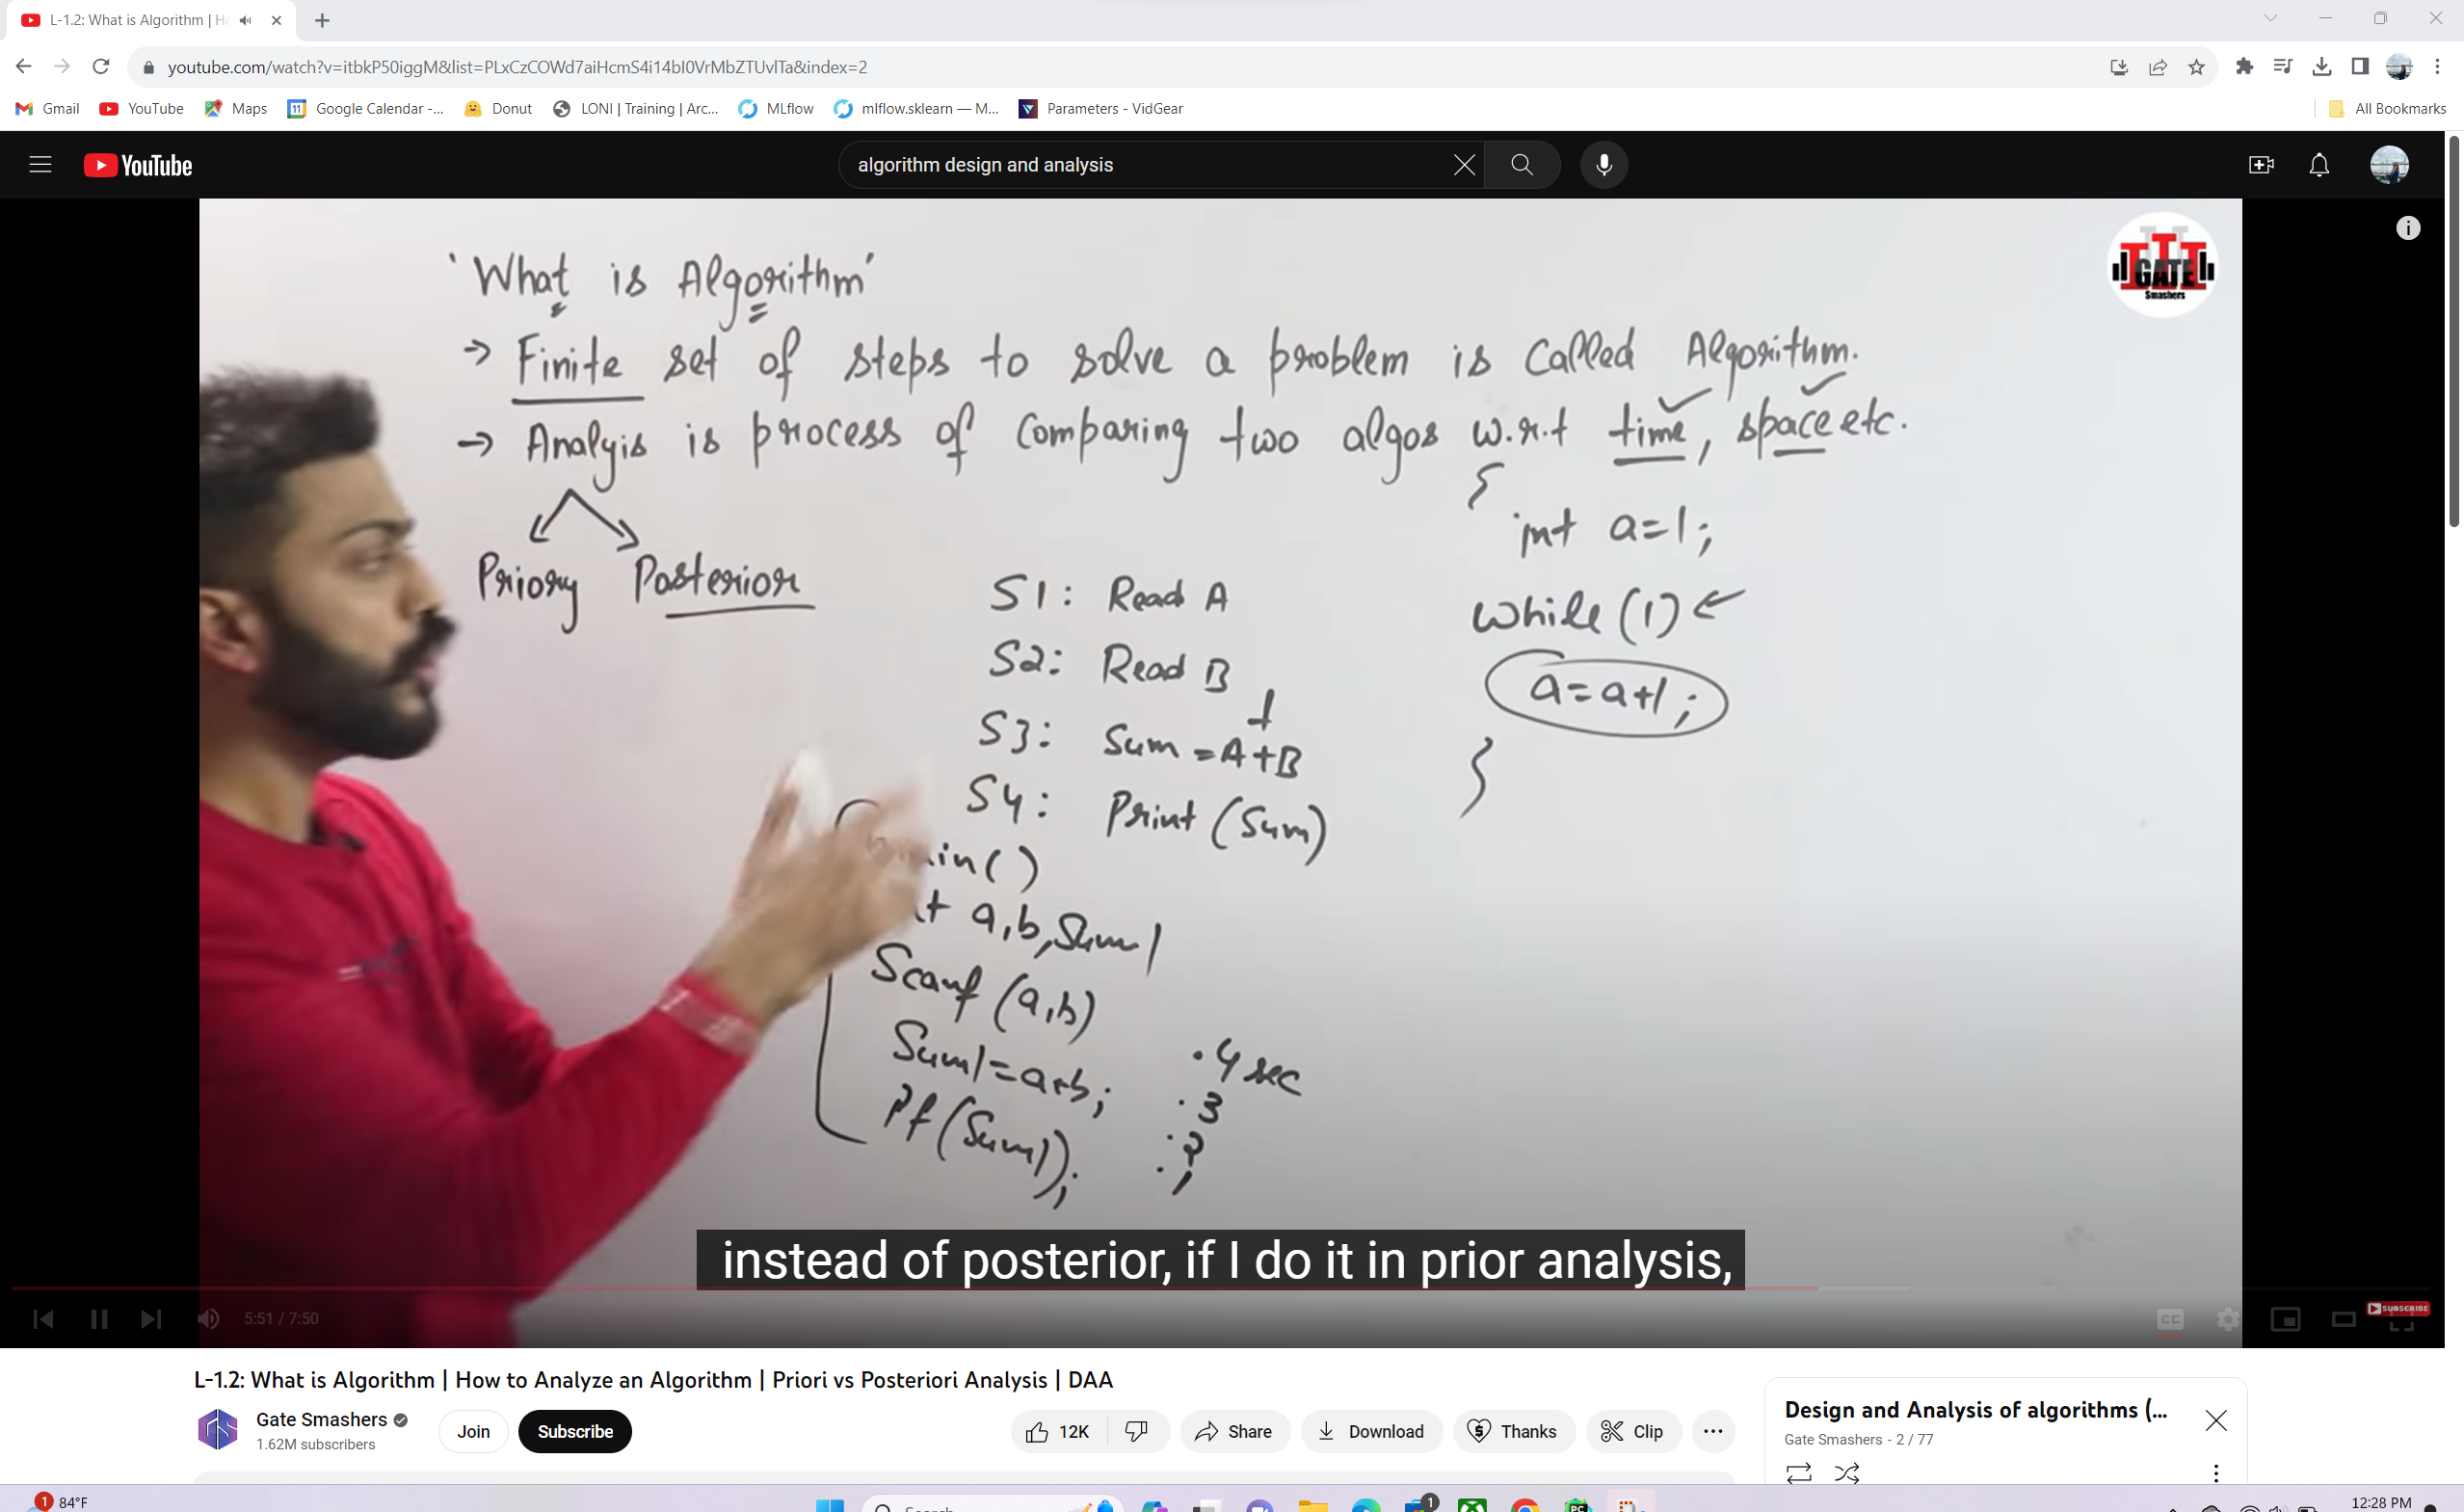 L-1.2: What is Algorithm | H
youtube.com/watch?v=itbkP50iggM&list=PLxCzCOWd7aiHcmS4i14bI0VrMbZTUvlTa&index=2
Gmail YouTube Maps Google Calendar -... Donut LONI | Training | Arc... MLflow mlflow.sklearn — M... Parameters - VidGear All Bookmarks
YouTube algorithm design and analysis
GATE
Smashers
'What is Algorithm'
→ Finite set of steps to solve a problem is called Algorithm.
→ Analyis is process of comparing two algos w.r.t time, space etc.
Priory Posterior
S1: Read A
S2: Read B
S3: Sum = A+B
S4: Print (Sum)
{
int a=1;
while (1)
a=a+1;
}
a,b,Sum1
Scanf (a,b)
Sum1=a+b;
Pf(Sum1);
.4 sec
.3
instead of posterior, if I do it in prior analysis,
5:51 / 7:50
CC
SUBSCRIBE
L-1.2: What is Algorithm | How to Analyze an Algorithm | Priori vs Posteriori Analysis | DAA
Gate Smashers
1.62M subscribers
Join Subscribe 12K Share Download Thanks Clip
Design and Analysis of algorithms (...
Gate Smashers - 2 / 77
1 84°F
Search
1
12:28 PM